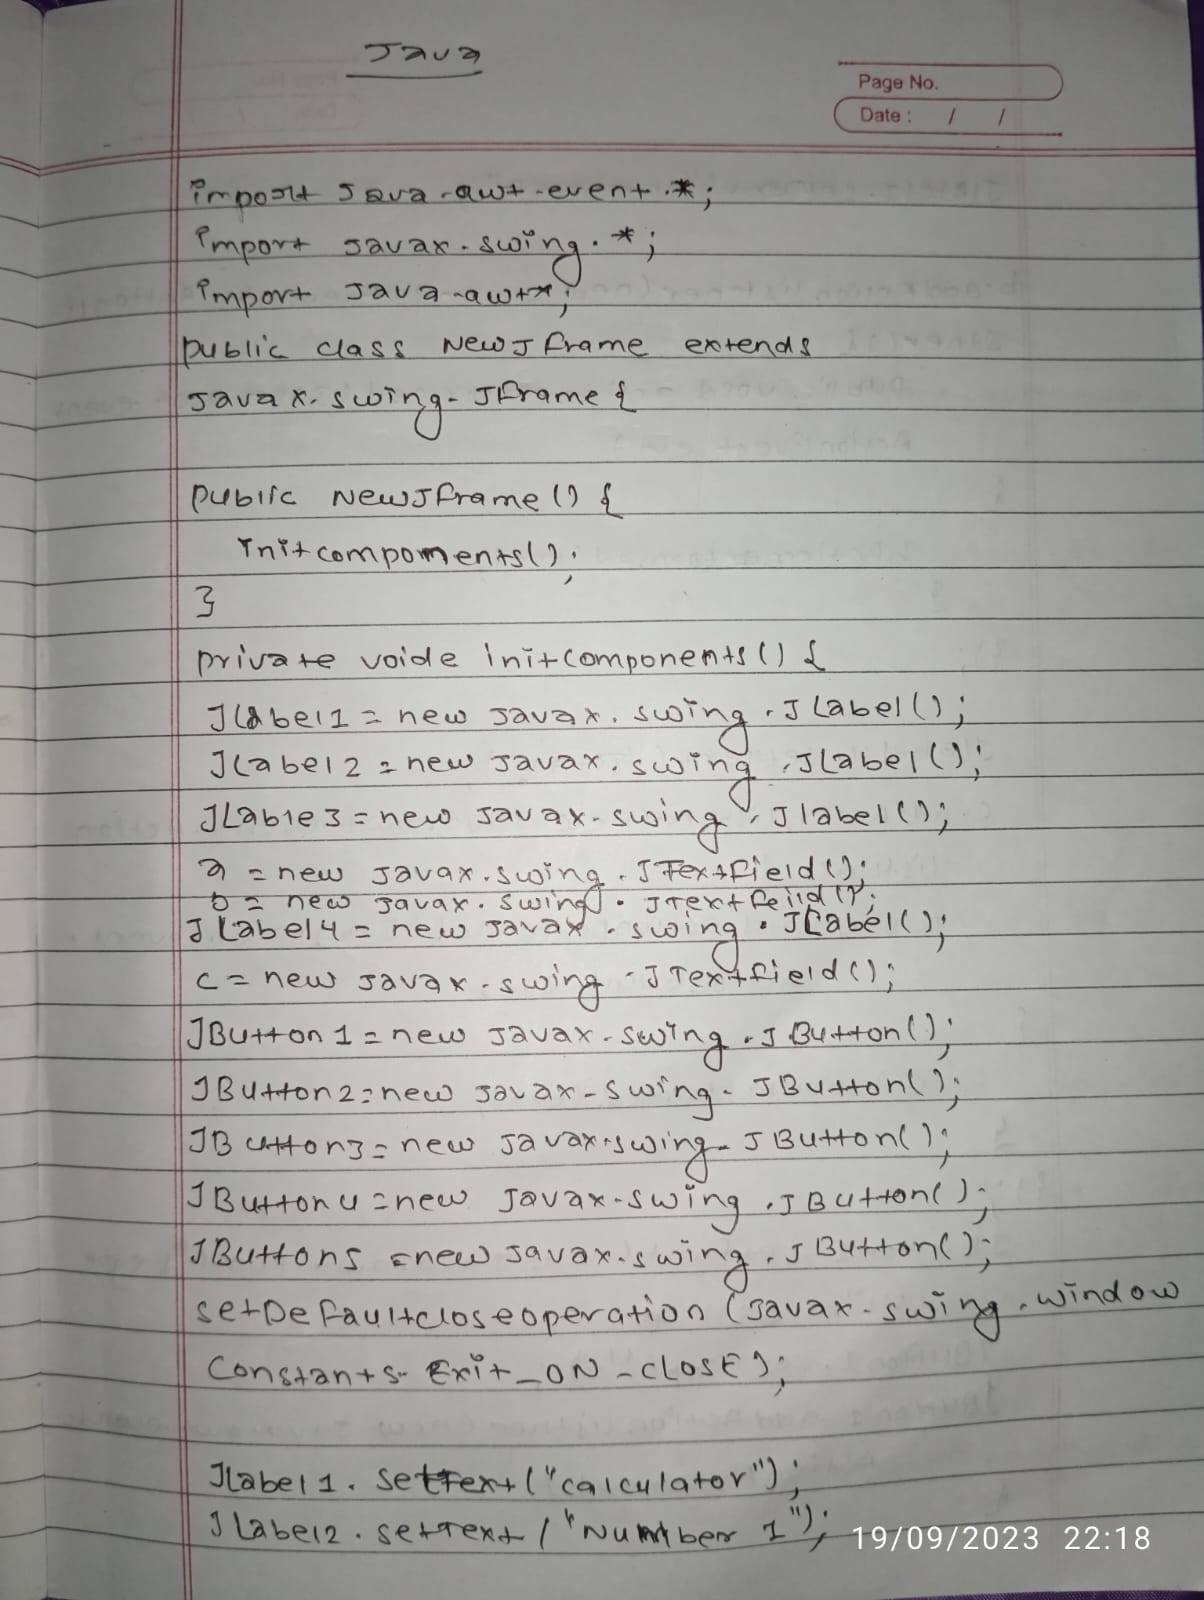 Java
Page No.
Date : / /
import Java.awt.event.*;
import Javax.swing.*;
import Java.awt*;
public class NewJframe extends
Javax.swing.JFrame {
public NewJframe() {
Initcompoments();
}
private voide initcomponents() {
JLabel1 = new Javax.swing.JLabel();
JLabel2 = new Javax.swing.JLabel();
JLable3 = new Javax.swing.Jlabel();
a = new Javax.swing.JTextfield();
b = new Javax.swing.JTextfeild();
JLabel4 = new Javax.swing.JLabel();
c = new Javax.swing.JTextfield();
JButton1 = new Javax.swing.JButton();
JButton2 = new Javax.swing.JButton();
JButton3 = new Javax.swing.JButton();
JButton4 = new Javax.swing.JButton();
JButton5 = new Javax.swing.JButton();
setDefaultcloseoperation (Javax.swing.window
Constants.Exit_ON_CLOSE);
Jlabel1.setText("calculator");
JLabel2.setText("Number 1");
19/09/2023 22:18